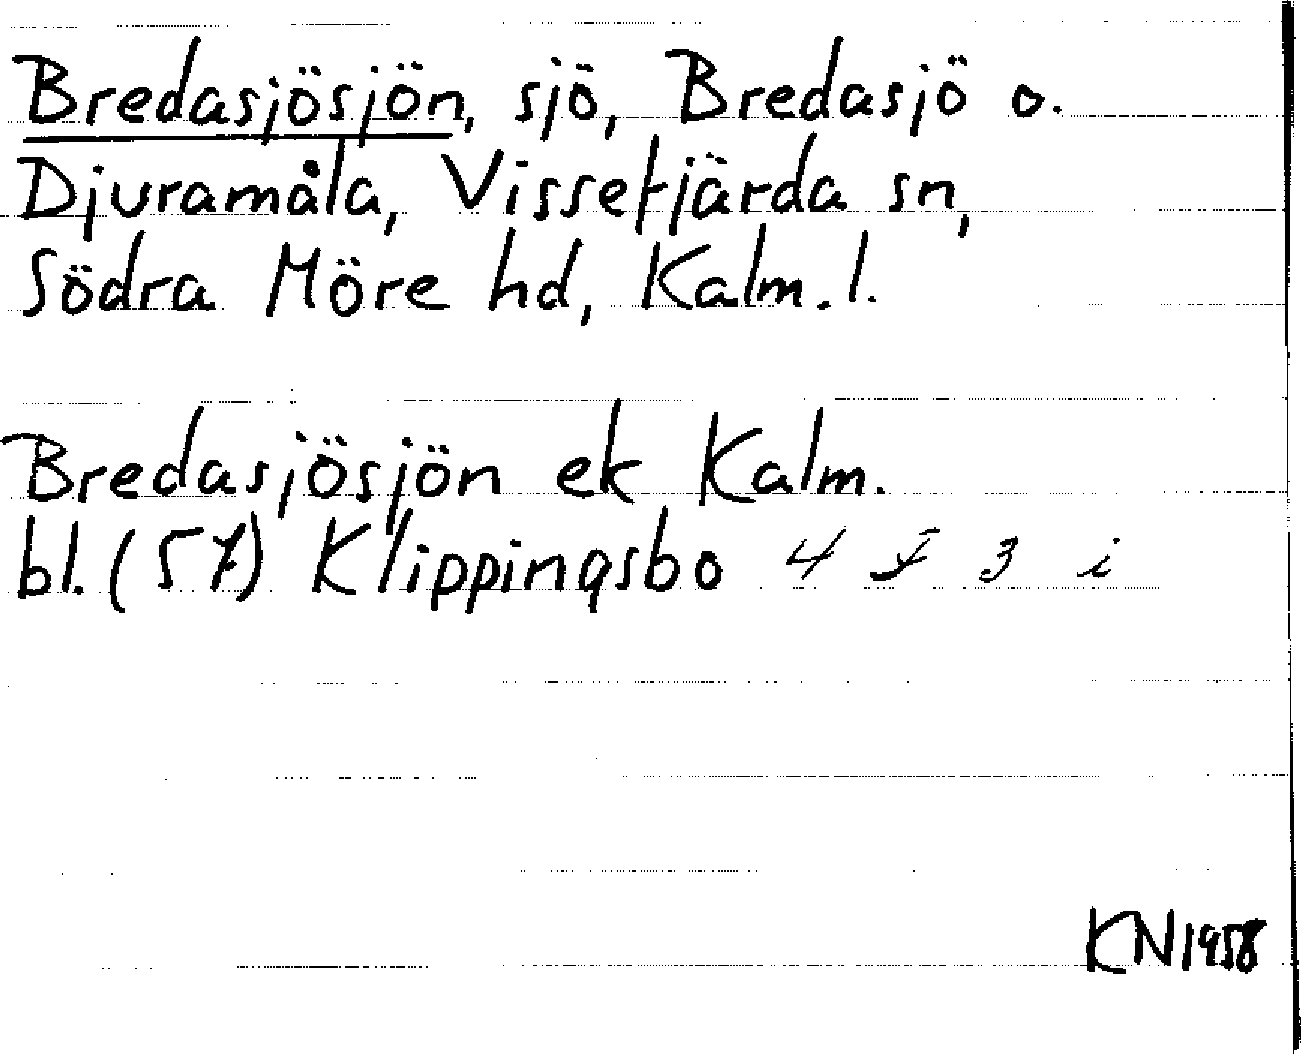 Bredasjösjön, sjö, Bredasjö o.
Djuramåla, Vissefjärda sn,
Södra Möre hd, Kalm. l.
Bredasjösjön ek Kalm.
bl. (57) Klippingsbo 4 F 3 i
KN 1958